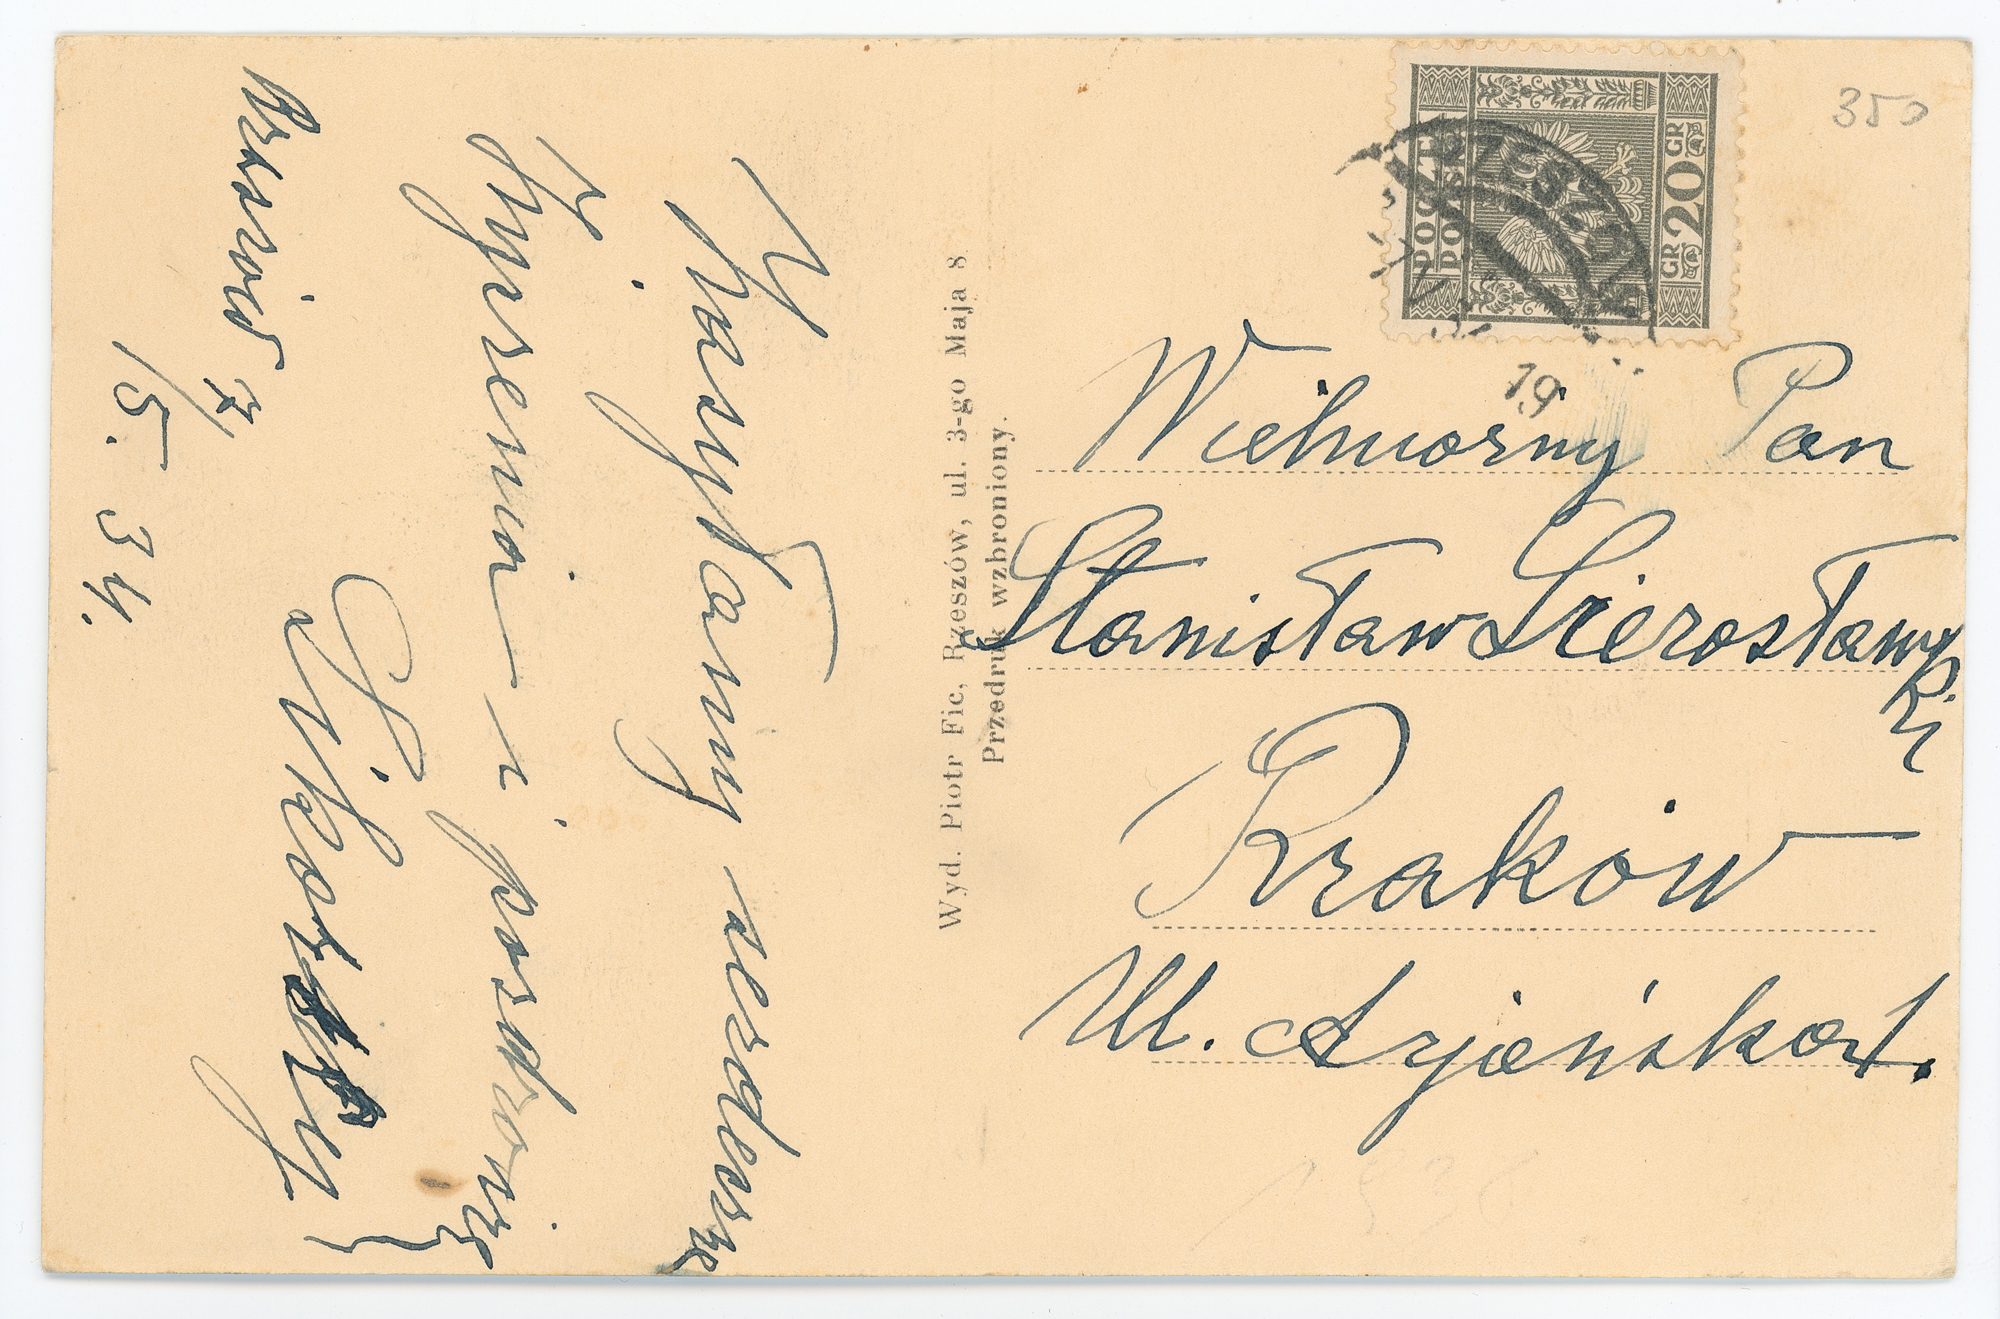 Z
Przasnysłamy serdeczne
życzenia i pozdrowie
Sikorscy
Rzeszów 7/5. 34.
Wyd. Piotr Fic, Rzeszów, ul. 3-go Maja 8.
Przedruk wzbroniony.
POCZTA
POLSKA
GR 20 GR
RZESZÓW
19
350
Wielmożny Pan
Stanisław Sierosławski
Kraków
Ul.